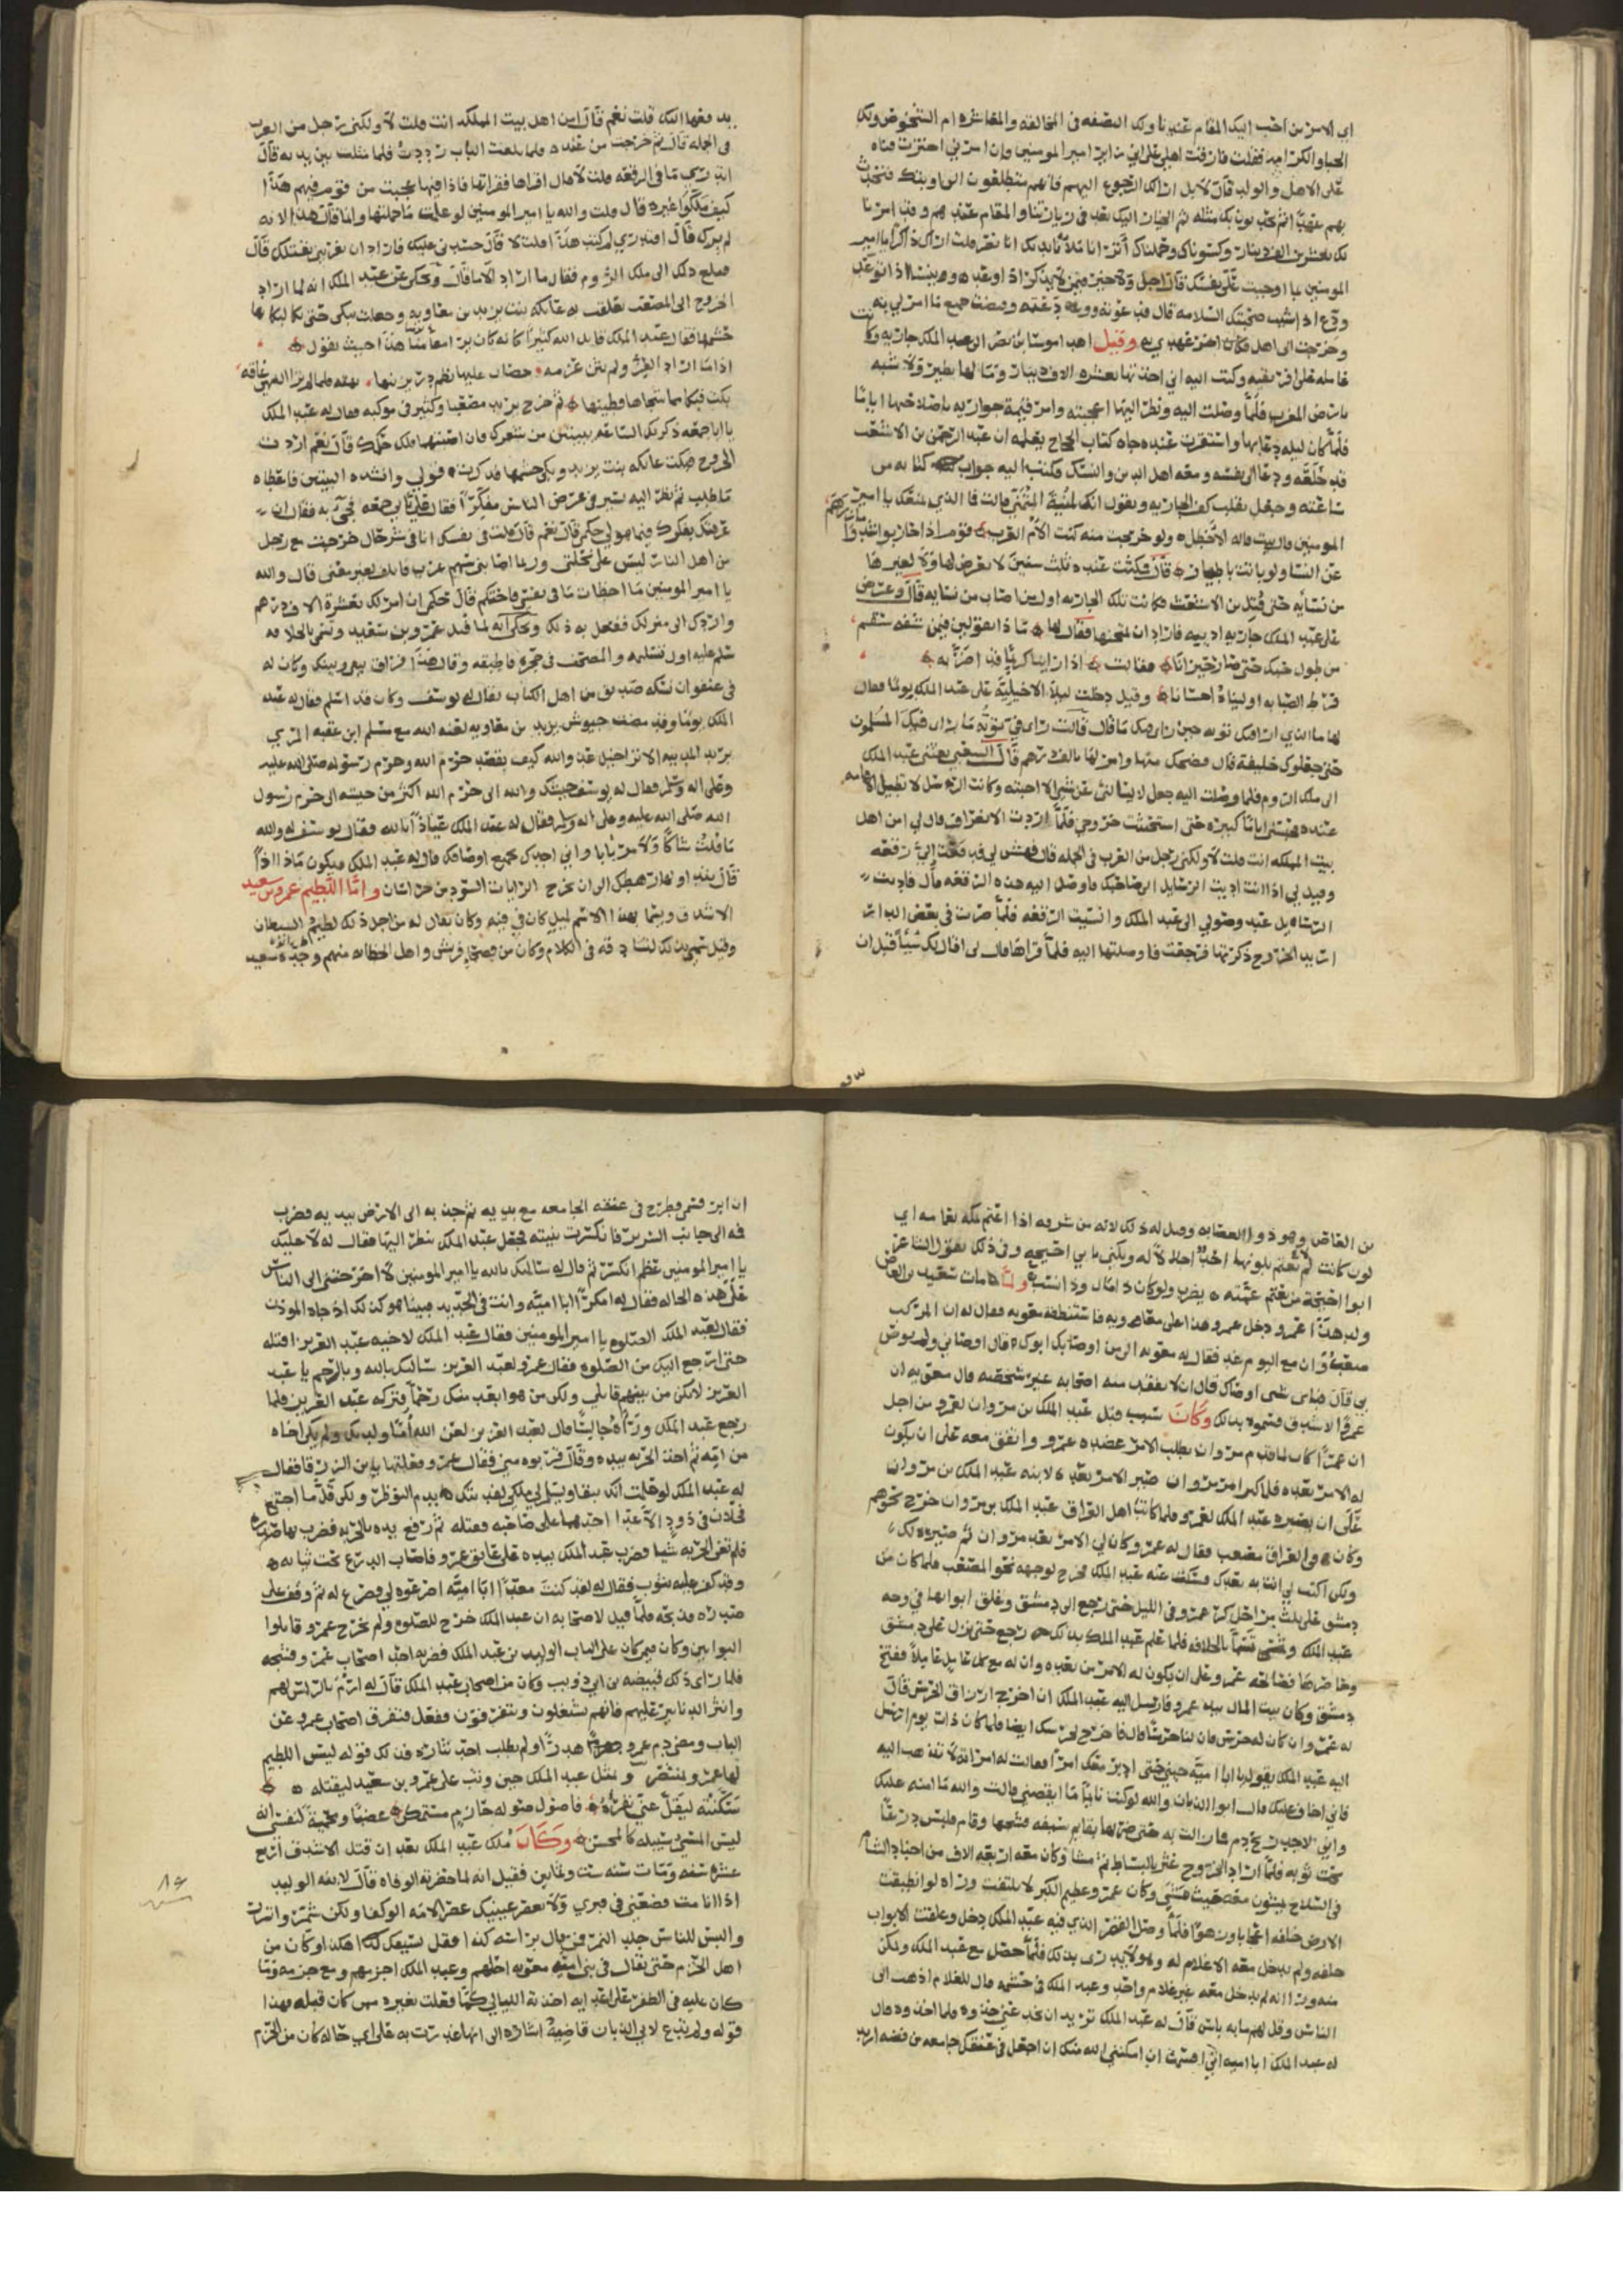 اي الامرين احب اليك المقام عندنا ولك النصفه في المخالفه والمعاشره ام الشخوص ولك
الحبا والكرامه فقلت فارقت اهلي على اني زاير امير المومنين وان امرني اخترت فناه
على الاهل والولد قال لا بل اراى الرجوع اليهم فانهم متطلعون الى اوبتك فتحدث
بهم عهدا ثم الخيار اليك بعد في زيارتنا والمقام عندهم وقد امرنا
لك بعشرين الف دينار وكسوناك وحملناك اتراني ملات يديك ابا نصر قلت اراك ذاكرا يا امير
المومنين لما اوجبت على نفسك قال اجل ولا خير فيمن لا يذكر اذا وعد
ودع اذا شيت صحبتك السلامه قال فودعته وقبضت جميع ما امر لي به
وخرجت الى اهلي فكان اخر عهدي به وقيل اهدى موسى بن نصير الى عبد الملك جاريه وكانت
عامله على افريقيه وكتب اليه اني اخذتها بعشره الاف دينار وما لها نظير ولا شبه
بارض المغرب فلما وصلت اليه ونظر اليها اعجبته وامر قيمة جواريه باصلاحها
فلما كان ليله دعا بها واستقرت عنده جاه كتاب الحجاج يعلمه ان عبد الرحمن بن الاشعث
قد خلعه ودعا الى نفسه ومعه اهل الدين والنسك فكتب اليه جواب كتابه من
ساعته وجعل يقلب كف الجاريه ويقول انك لمنية المتمني قالت فما الذي يمنعك يا امير
المومنين قال بيت قاله الاخطل ولو خرجت منه كنت الام العرب قوم اذا حاربوا شدوا مازرهم
عن النسا ولو باتت باطهار قال فمكثت عنده ثلث سنين لا يعرض لها ولا لغيرها
من نسايه حتى قتل بن الاشعث فكانت تلك الجاريه اول من اصاب من نسايه قال وعرض
على عبد الملك جاريه اديبه فاراد ان يمتحنها فقال لها ما ذا تقولين فيمن شفه سقم
من طول حبك حتى صار حيرانا فقالت اذا راينا محبا قد اضر به
فرط الصبابه اوليناه احسانا وقيل دخلت ليلى الاخيليه على عبد الملك يوما فقال
لها ما الذي راى فيك توبه حين راى منك ما قال قالت راى في توبة ما راى فيك المسلمون
حتى جعلوك خليفة قال فضحك منها وامر لها بالف درهم قال الشعبي بعثني عبد الملك
الى ملك الروم فلما وصلت اليه جعل لا يسالني عن شي الا اجبته وكانت الرسل لا تطيل الاقامه
عنده فحبسني اياما كثيره حتى استحثثت خروجي فلما اردت الانصراف قال لي امن اهل
بيت المملكه انت قلت لا ولكني رجل من العرب في الجمله قال فهمس لي فدفعت الي رقعه
وقيل لي اذا انت اديت الرسايل الى صاحبك فاوصل اليه هذه الرقعه قال فاديت
الرسايل عند وصولي الى عبد الملك وانسيت الرقعه فلما صرت في بعض الدار
اريد الخروج ذكرتها فرجعت فاوصلتها اليه فلما قراها قال لي اقال لك شيئا قبل ان
يدفعها اليك قلت نعم قال من اهل بيت المملكه انت قلت لا ولكني رجل من العرب
في الجمله قال ثم خرجت من عنده فلما بلغت الباب رددت فلما مثلت بين يديه قال
اتدري ما في الرقعه قلت لا قال اقراها فقراتها فاذا فيها عجبت من قوم فيهم هذا
كيف ملكوا غيره قال قلت والله يا امير المومنين لو علمت ما حملتها وانما قال هذا لانه
لم يرك قال افتدري لم كتب هذا قلت لا قال حسدني عليك فاراد ان يغريني بقتلك قال
فبلغ ذلك الى ملك الروم فقال ما اراد الا ما قال وحكي عن عبد الملك انه لما اراد
الخروج الى المصعب تعلقت به عاتكه بنت يزيد بن معاويه وجعلت تبكي حتى بكا لبكايها
حشمها فقال عبد الملك قاتل الله كثيرا كانه كان يرا مقامنا هذا حيث يقول
اذا ما اراد الغزو لم يثن عزمه حصان عليها نظم در يزينها نهته فلما لم تر النهي عاقه
بكت فبكا مما شجاها قطينها ثم خرج يريد مصعبا وكثير في موكبه فقال له عبد الملك
يا ابا جمعه ذكرتك الساعه ببيتين من شعرك فان اصبتهما فلك حكمك قال نعم اردت
الخروج فبكت عاتكه بنت يزيد وبكى حشمها فذكرت قولي وانشده البيتين فاعطاه
ما طلب ثم نظر اليه يسير في عرض الناس مفكرا فقال علي بابن ابي جمعه فجي به فقال ان
عرفتك بفكرك فما هو لي حكمي قال نعم قال قلت في نفسك انا في شر حال خرجت مع رجل
من اهل النار ليس على نحلتي وربما اصابني سهم غرب فاتلف لغير معنى قال والله
يا امير المومنين ما اخطات ما في نفسي فاحتكم قال حكمي ان امر لك بعشرة الاف درهم
واردك الى منزلك ففعل به ذلك وحكي انه لما قتل عمرو بن سعيد وتسمى بالخلافه
سلم عليه اول تسليمه والمصحف في حجره فاطبقه وقال هذا فراق بيني وبينك وكان له
في عنفوان نسكه صديق من اهل الكتاب يقال له يوسف وكان قد اسلم فقال له عبد
الملك يوما وقد مضت جيوش يزيد بن معاويه لعنه الله مع مسلم ابن عقبه المري
يريد المدينه الا ترا خيل عدو الله كيف يقصد حرم الله وحرم رسوله صلى الله عليه
وعلى اله وسلم فقال له يوسف جيشك والله الى حرم الله اكثر من جيشه الى حرم رسول
الله صلى الله عليه وعلى اله وسلم فقال له عبد الملك عياذا بالله فقال يوسف له والله
ما قلت شاكا ولا مرتابا واني اجدك بجميع اوصافك قال له عبد الملك فيكون ماذا اذا
قال يتداولها رهطك الى ان تخرج الرايات السود من خراسان واما اللطيم عمرو بن سعيد
الاشدق وسما بهذا الاسم لميل كان في فيه وكان يقال له من اجل ذلك لطيم الشيطان
وقيل سمي بذلك لتشادقه في الكلام وكان من فصحا قريش واهل الخطابه منهم وجده سعيد
بن العاص وهو ذو العصابه وقيل له ذلك لانه من شرفه اذا اعتم بمكه بعمامه اي
لون كانت لم يعتم بلونها احد اجلالا له ويكنى بابي احيحه وفي ذلك يقول الشاعر
ابوا احيحة من يعتم عمته يضرب ولو كان ذا مال وذا نسب ولما مات سعيد بن العاص
ولد هذا عمرو دخل عمرو هذا على معاويه فاستنطقه معويه فقال له ان اول مركب
صعب وان مع اليوم غد فقال له معويه الى من اوصى بك ابوك قال اوصاني ولم يوص
بي قال فباي شي اوصاك قال ان لا يفقد منه اصحابه غير شخصه قال معويه ان
عمروا لاشدق فسموه بذلك وكان سبب قتل عبد الملك بن مروان لعمرو من اجل
ان عمرا كان لما قدم مروان يطلب الامر عضده عمرو واتفق معه على ان يكون
له الامر بعده فلما كبر امر مروان صير الامر بعده لابنه عبد الملك بن مروان
على ان يصيره عبد الملك لعمرو فلما كاتب اهل العراق عبد الملك بن مروان خرج نحوهم
وكان في العراق مصعب فقال له عمرو كان لي الامر بعد مروان ثم صيره لك
ولكن اكتب لي انت به بعدك فسكت عنه عبد الملك فخرج لوجهه نحو المصعب فلما كان من
دمشق على ثلث مراحل كر عمرو في الليل حتى رجع الى دمشق وغلق ابوابها في وجه
عبد الملك وتسمى بالخلافه فلما علم عبد الملك بذلك رجع حتى نزل على دمشق
وحاصرها فصالحه عمرو على ان يكون له الامر من بعده وان له مع كل عامل عاملا ففتح
دمشق وكان بيت المال بيد عمرو فارسل اليه عبد الملك ان اخرج ارزاق الحرس فقال
له عمرو ان كان لك حرس فان لنا حرسا قال فاخرج لحرسك ايضا فلما كان ذات يوم ارسل
اليه عبد الملك يقول يا ابا اميه جيني حتى ادبر معك امرا فقالت له امراته لا تذهب اليه
فاني اخافه عليك قال ابوا الذبان والله لو كنت نايما ما ايقضني قالت والله ما امنه عليك
واني لاجد ريح دم فما زالت به حتى ضربها بقايم سيفه فشجها وقام فلبس درعا
تحت ثوبه فلما اراد الخروج عثر بالبساط ثم مشا وكان معه اربعه الاف من اجناد الشام
في السلاح يمشون معه حيث مشى وكان عمرو عظيم الكبر لا يلتفت وراه لو انطبقت
الارض خلفه اعجابا وزهوا فلما وصل القصر الذي فيه عبد الملك دخل وغلقت الابواب
خلفه ولم يدخل معه الا غلام له وهو لا يدري بذلك فلما حصل مع عبد الملك وتمكن
منه ورا انه لم يدخل معه غير غلام واحد وعبد الملك في حشمه قال للغلام اذهب الى
الناس وقل لهم ما به باس قال له عبد الملك تريد ان تخدعني خذوه فلما اخذوه قال
له عبد الملك ابا اميه اني اقسمت ان امكنني الله منك ان اجعل في عنقك جامعه من فضه اريد
ان ابر قسمي وطرح في عنقه الجامعه مع يديه ثم جذبه الى الارض بيديه فضرب
فمه الى جانب السرير فانكسرت ثنيته فجعل عبد الملك ينظر اليها فقال له لا عليك
يا امير المومنين عظم انكسر ثم قال له سالتك بالله يا امير المومنين لا اخرجتني الى الناس
على هذه الحاله فقال له امكرا ابا اميه وانت في الحديد فبينما هو كذلك اذ جاه الموذن
فقال لعبد الملك الصلوه يا امير المومنين فقال عبد الملك لاخيه عبد العزيز اقتله
حتى ارجع اليك من الصلوه فقال عمرو لعبد العزيز سالتك بالله وبالرحم يا عبد
العزيز لا تكن من بينهم قاتلي ولكن من هو ابعد منك رحما فتركه عبد العزيز فلما
رجع عبد الملك وراه جالسا قال لعبد العزيز لعن الله اما ولدتك ولم يكن اخاه
من امه ثم اخذ الحربه بيده وقال قربوه مني فقال عمرو فعلتها يا بن الزرقا فقال
له عبد الملك لو علمت انك تبقا ويسلم لي ملكي لفديتك بدم النواظر ولكن قل ما اجتمع
فحلان في ذود الا عدا احدهما على صاحبه فقتله ثم رفع يده بالحربه فضرب بها صدره
فلم تغن الحربه شيا فضرب عبد الملك بيده على عاتق عمرو فاصاب الدرع تحت ثيابه
وقد كفر عليه بثوب فقال له لقد كنت معدا ابا اميه اصرعوه لي فصرع له ثم وقف على
صدره فذبحه فلما قيل لاصحابه ان عبد الملك خرج للصلوه ولم يخرج عمرو قاتلوا
البوابين وكان ممن كان على الباب الوليد بن عبد الملك فضربه احد اصحاب عمرو فشجه
فلما راى ذلك قبيصه بن ابي ذويب وكان من اصحاب عبد الملك قال له ارم بالراس لهم
وانثر الدنانير عليهم فانهم يشتغلون ويتفرقون ففعل فتفرق اصحاب عمرو عن
الباب ومضى دم عمرو هدرا ولم يطلب احد بثاره فذلك قوله ليس اللطيم
لها عمرو بمنتصر وتمثل عبد الملك حين وثب على عمرو بن سعيد ليقتله
سكنته ليقل عني نفره فاصول صوله حازم متمكن غضبا ومحمية لنفسي انه
ليس المسي سبيله كالمحسن وكان ملك عبد الملك بعد ان قتل الاشدق اربع
عشره سنه ومات سنه ست وثمانين فقيل انه لما حضرته الوفاه قال لابنه الوليد
اذا انا مت فضعني في قبري ولا تعصر عينيك عصر الامه الوكعا ولكن شمر واتزر
والبس للناس جلد النمر فمن قال براسه كذا فقل بسيفك كذا هكذا وكان من
اهل الحزم حتى يقال في بني اميه معويه احلمهم وعبد الملك احزمهم ومع حزمه وما
كان عليه في الظفر على اعدايه اخذته الليالي كما فعلت بغيره ممن كان قبله فهذا
قوله ولم تدع لابي الذبان قاضبه اشاره الى انها غدرت به على اي حاله كان من الحزم